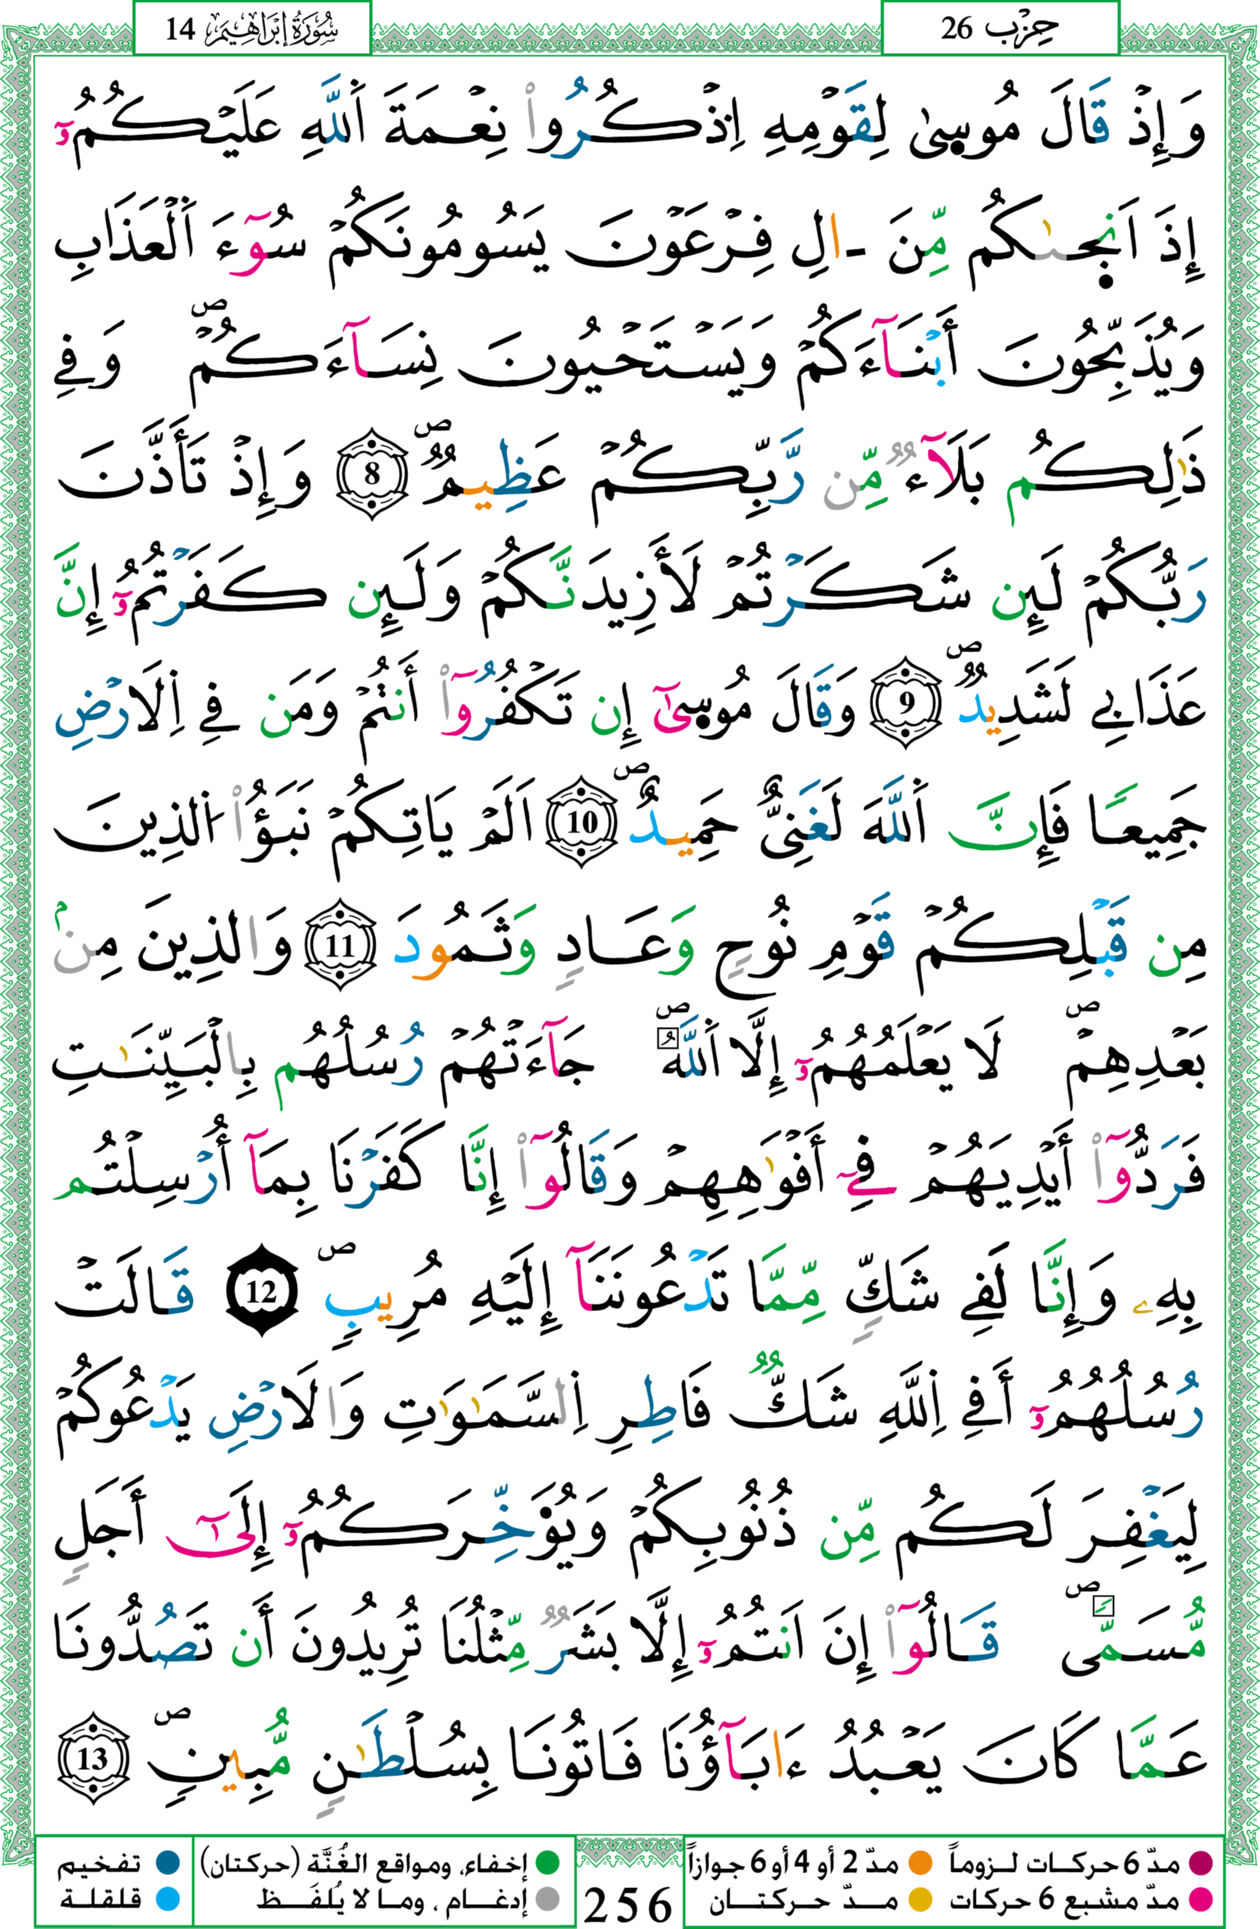 حِزْب 26
سُورَةُ إِبْرَاهِيم 14
وَإِذْ قَالَ مُوسِىٰ لِقَوْمِهِ اِذْكُرُواْ نِعْمَةَ اَ۬للَّهِ عَلَيْكُمُۥٓ
إِذَ اَنج۪ىٰكُم مِّنَ ـ۬الِ فِرْعَوْنَ يَسُومُونَكُمْ سُوٓءَ اَ۬لْعَذَابِ
وَيُذَبِّحُونَ أَبْنَآءَكُمْ وَيَسْتَحْيُونَ نِسَآءَكُمْۖ وَفِے
ذَٰلِكُم بَلَآءٞ مِّن رَّبِّكُمْ عَظِيمٞۖ 8 وَإِذْ تَأَذَّنَ
رَبُّكُمْ لَئِن شَكَرْتُمْ لَأَزِيدَنَّكُمْ وَلَئِن كَفَرْتُمُۥٓ إِنَّ
عَذَابِے لَشَدِيدٞۖ 9 وَقَالَ مُوس۪ىٰٓ إِن تَكْفُرُوٓاْ أَنتُمْ وَمَن فِے اِ۬لَارْضِ
جَمِيعاً فَإِنَّ اَ۬للَّهَ لَغَنِيٌّ حَمِيدٌۖ 10 اَلَمْ يَاتِكُمْ نَبَؤُاْ اُ۬لذِينَ
مِن قَبْلِكُمْ قَوْمِ نُوحٖ وَعَادٖ وَثَمُودَ 11 وَالذِينَ مِنۢ
بَعْدِهِمْۖ لَا يَعْلَمُهُمُۥٓ إِلَّا اَ۬للَّهُۖ جَآءَتْهُمْ رُسُلُهُم بِالْبَيِّنَٰتِ
فَرَدُّوٓاْ أَيْدِيَهُمْ فِےٓ أَفْوَٰهِهِمْ وَقَالُوٓاْ إِنَّا كَفَرْنَا بِمَآ أُرْسِلْتُم
بِهِۦ وَإِنَّا لَفِے شَكّٖ مِّمَّا تَدْعُونَنَآ إِلَيْهِ مُرِيبٖۖ 12 قَالَتْ
رُسُلُهُمُۥٓ أَفِے اِ۬للَّهِ شَكّٞ فَاطِرِ اِ۬لسَّمَٰوَٰتِ وَالَارْضِ يَدْعُوكُمْ
لِيَغْفِرَ لَكُم مِّن ذُنُوبِكُمْ وَيُوَ۬خِّرَكُمُۥٓ إِلَىٰٓ أَجَلٖ
مُّسَمّىٗۖ قَالُوٓاْ إِنَ اَنتُمُۥٓ إِلَّا بَشَرٞ مِّثْلُنَا تُرِيدُونَ أَن تَصُدُّونَا
عَمَّا كَانَ يَعْبُدُ ءَابَآؤُنَا فَاتُونَا بِسُلْطَٰنٖ مُّبِينٖۖ 13
مدّ 6 حركات لـزوماً مدّ 2 أو 4 أو 6 جوازاً
مدّ مشبع 6 حركات مـدّ حـركـتـان
256
إخفاء، ومواقع الغُنَّة (حركتان) تفخيم
إدغـام ، ومـا لا يُلفَـظ قلقلة